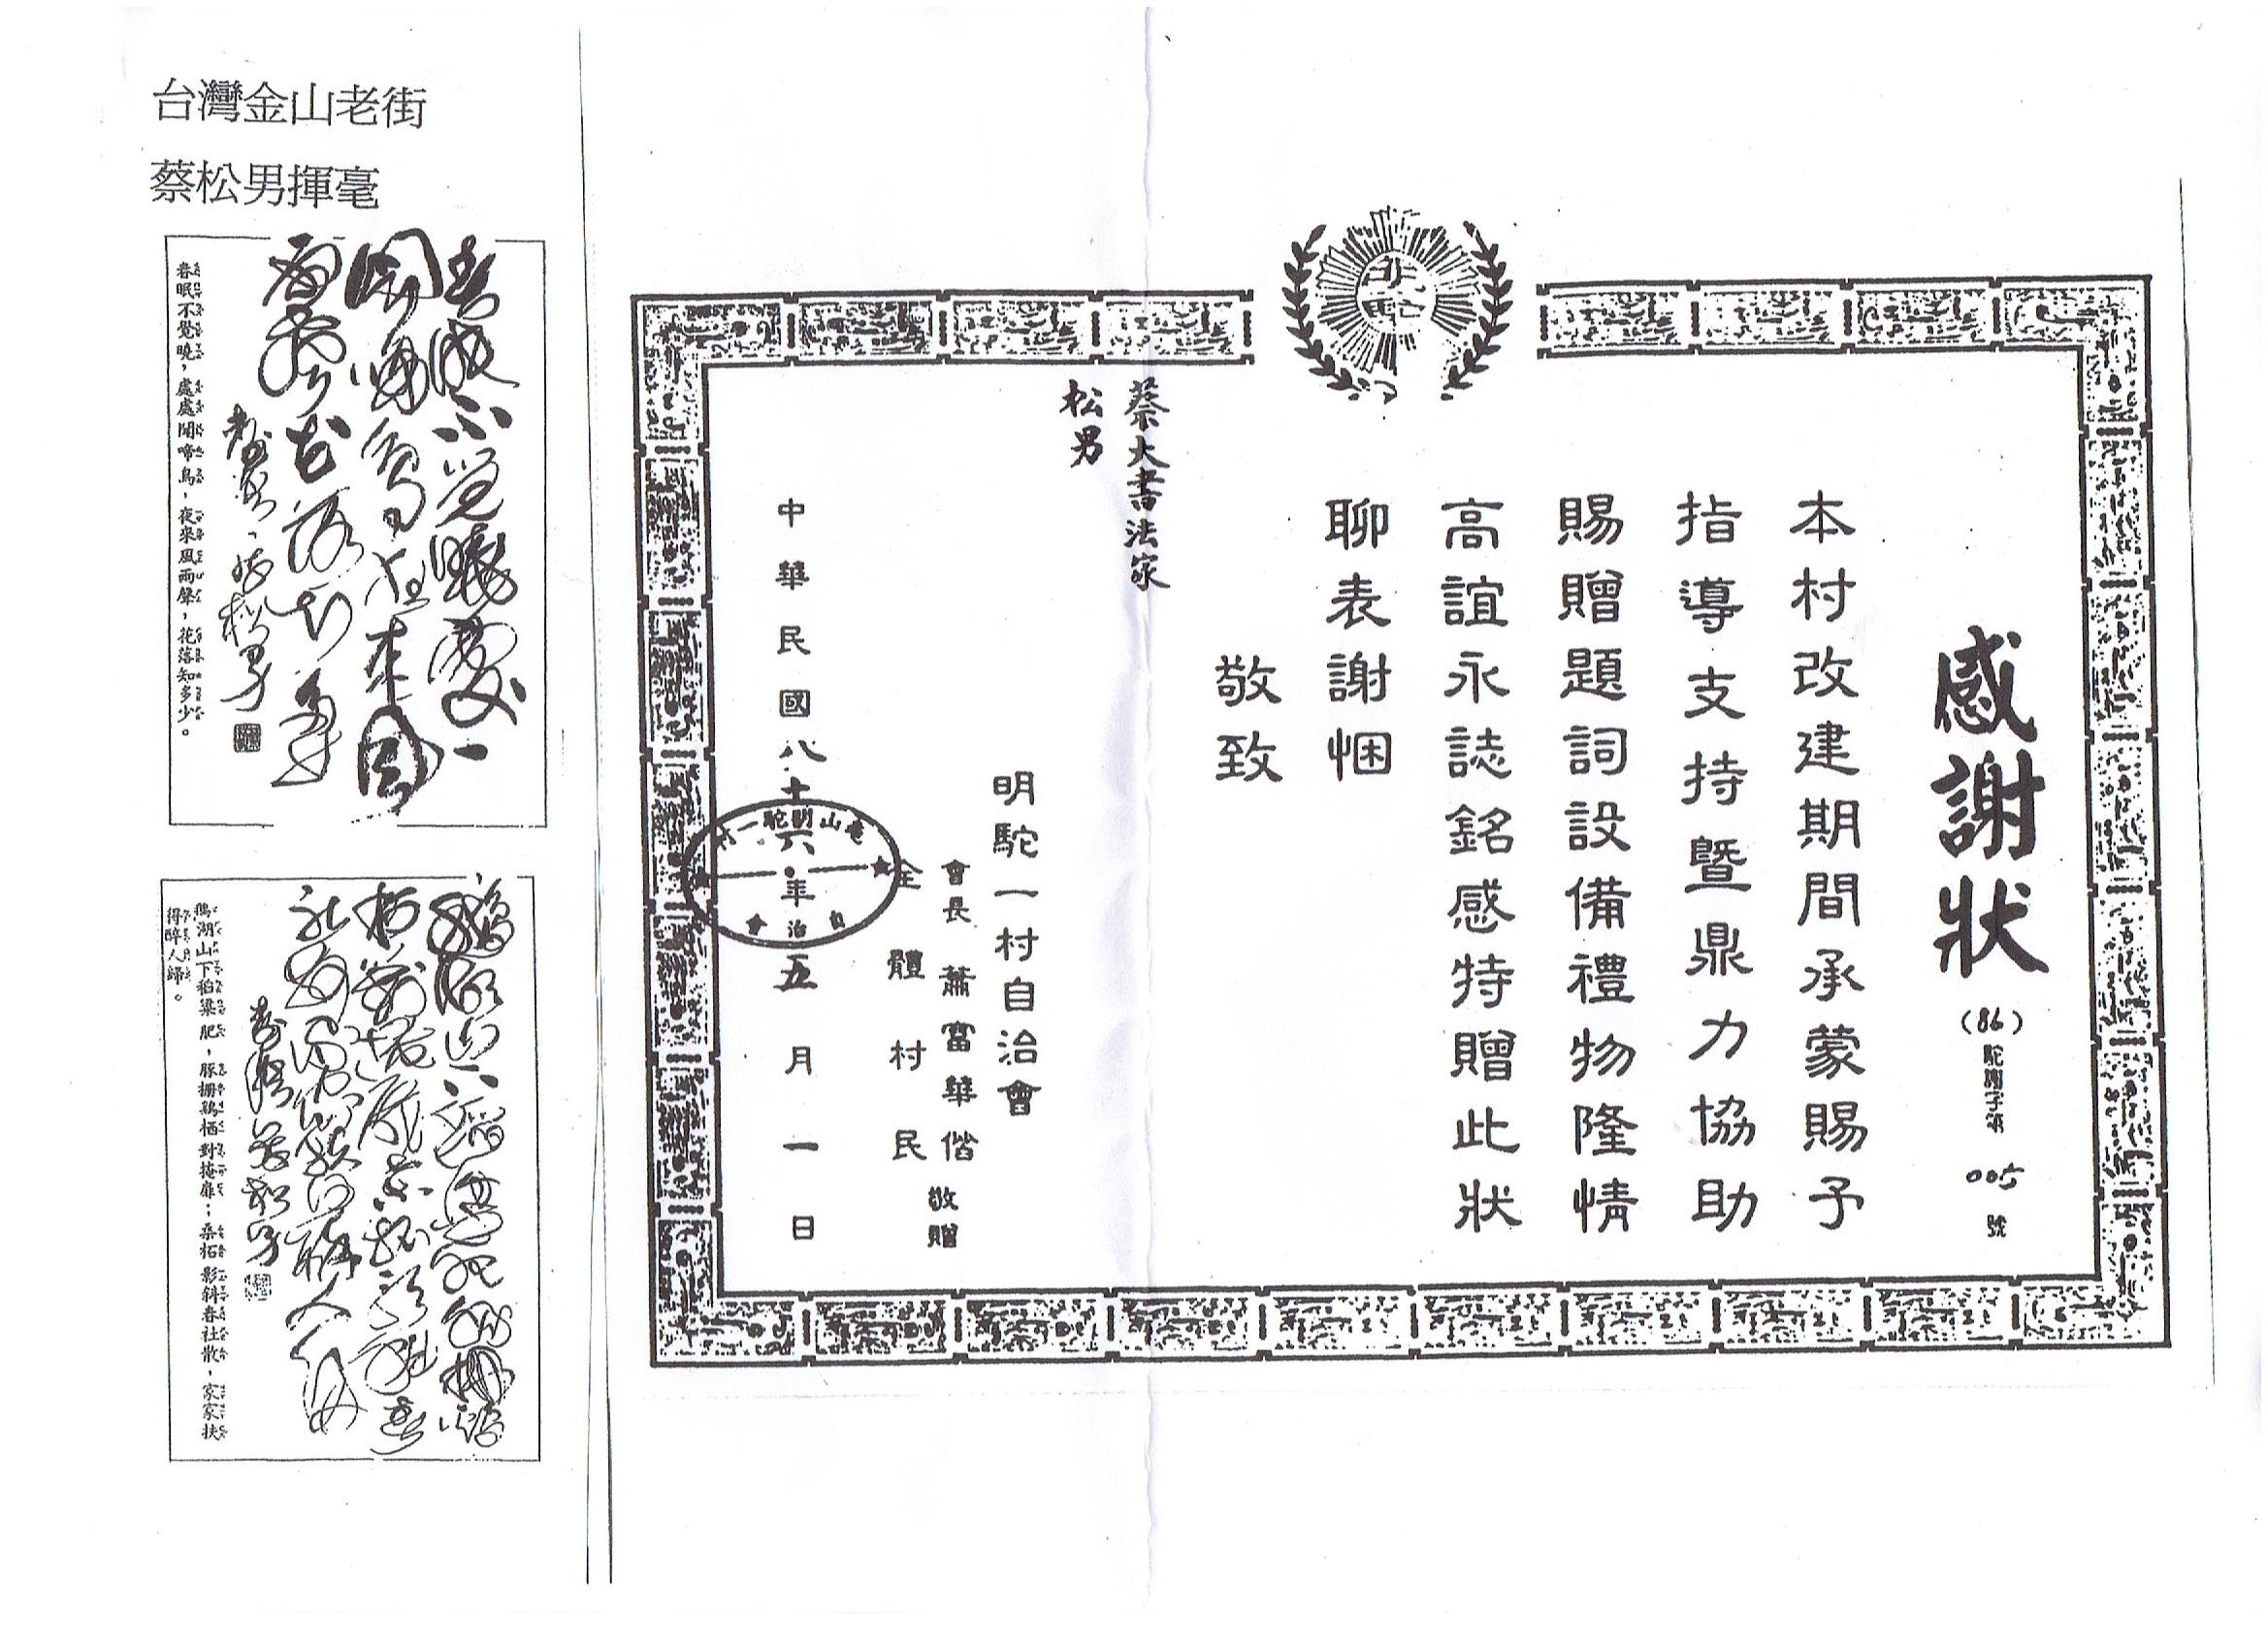 台灣金山老街
蔡松男揮毫
春眠不覺曉，處處聞啼鳥，夜來風雨聲，花落知多少。
鵝湖山下稻粱肥，豚柵鷄栖對掩扉：桑柘影斜春社散，家家扶
得醉人歸。
感謝狀
(86)駝謝字第 005 號
本村改建期間承蒙賜予
指導支持暨鼎力協助
賜贈題詞設備禮物隆情
高誼永誌銘感特贈此狀
聊表謝悃
敬致
蔡大書法家
松男
明駝一村自治會
會長蕭富華偕
全體村民
敬贈
中華民國八十六年五月一日